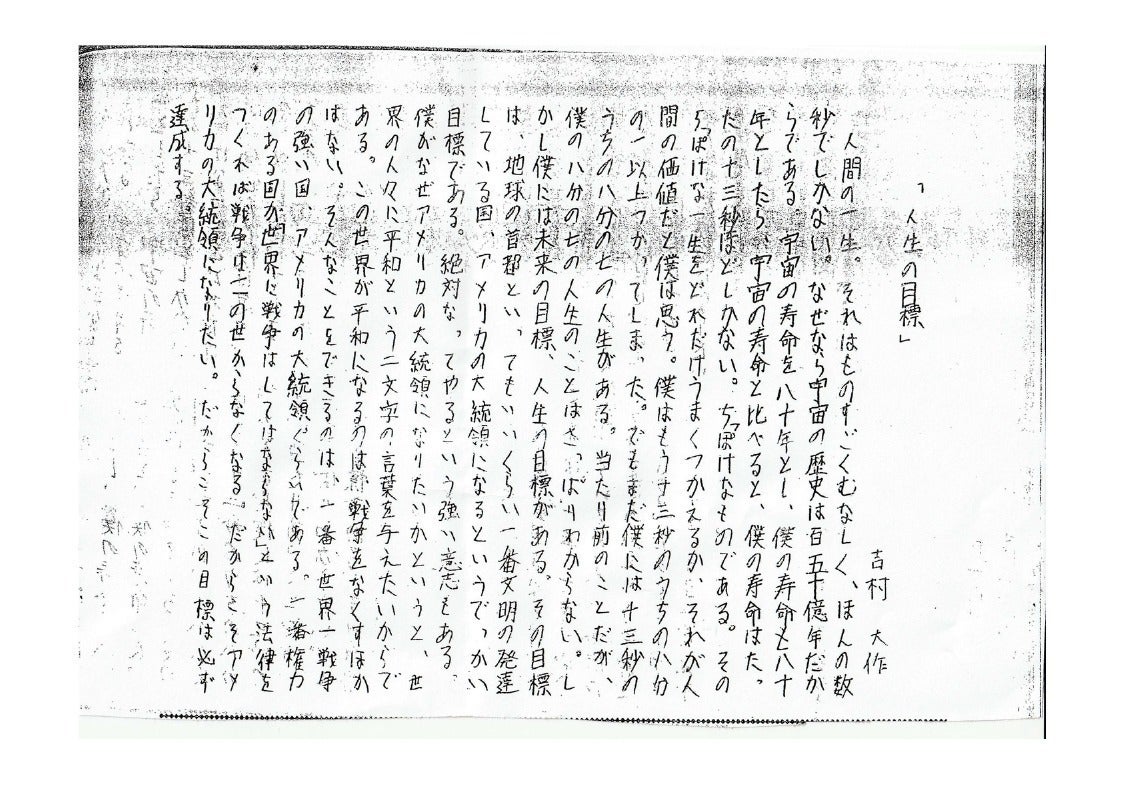 「人生の目標」
吉村　大作
人間の一生。それはものすごくむなしく、ほんの数
秒でしかない。なぜなら宇宙の歴史は百五十億年だか
らである。宇宙の寿命を八十年とし、僕の寿命も八十
年としたら、宇宙の寿命と比べると、僕の寿命はたっ
たの十三秒ほどしかない。ちっぽけなものである。その
ちっぽけな一生をどれだけうまくつかえるか、それが人
間の価値だと僕は思う。僕はもう十三秒のうちの八分
の一以上つかってしまった。でもまだ僕には十三秒の
うちの八分の七の人生がある。当たり前のことだが、
僕の八分の七の人生のことはさっぱりわからない。し
かし僕には未来の目標、人生の目標がある。その目標
は、地球の首都といってもいいくらい一番文明の発達
している国、アメリカの大統領になるというでっかい
目標である。絶対なってやるという強い意志もある。
僕がなぜアメリカの大統領になりたいかというと、世
界の人々に平和という二文字の言葉を与えたいからで
ある。この世界が平和になるのは戦争をなくすほか
はない。そんなことをできるのは、一番、世界一戦争
の強い国、アメリカの大統領ぐらいである。一番権力
のある国が「世界に戦争はしてはならない」という法律を
つくれば戦争はこの世からなくなる。だからこそアメ
リカの大統領になりたい。だからこそこの目標は必ず
達成する。